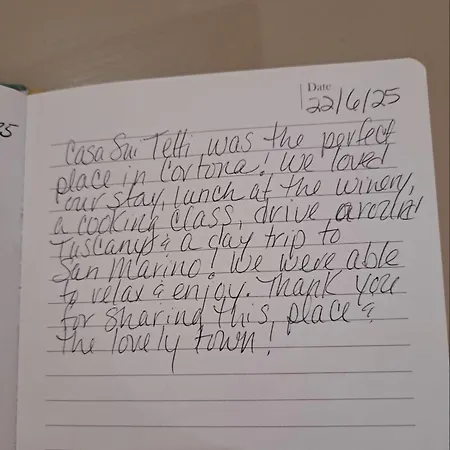 Date
22/6/25
Casa Sui Tetti was the perfect
place in Cortona! We loved
our stay, lunch at the winery,
a cooking class, drive around
Tuscany & a day trip to
San Marino! We were able
to relax & enjoy. Thank you
for sharing this place &
the lovely town!